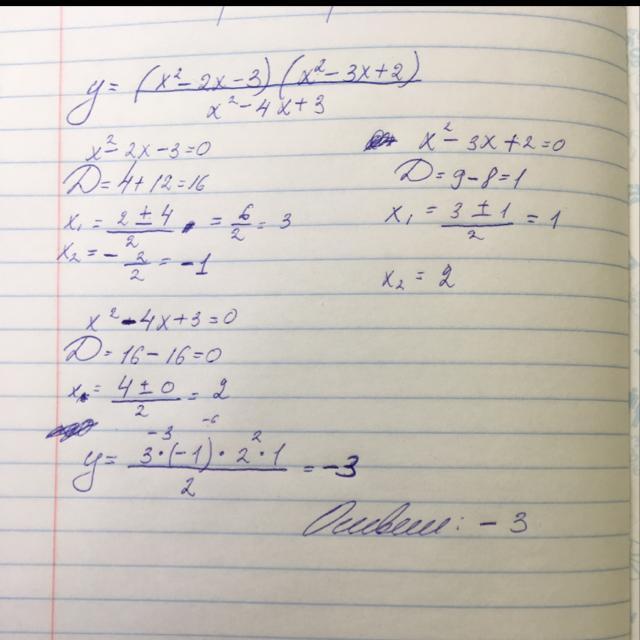 y = (x² - 2x - 3)(x² - 3x + 2) / x² - 4x + 3
x² - 2x - 3 = 0
D = 4 + 12 = 16
x₁ = 2 ± 4 / 2 = 6/2 = 3
x₂ = - 2/2 = -1
x² - 3x + 2 = 0
D = 9 - 8 = 1
x₁ = 3 ± 1 / 2 = 1
x₂ = 2
x² - 4x + 3 = 0
D = 16 - 16 = 0
x. = 4 ± 0 / 2 = 2
-3 -6 2
y = 3·(-1)·2·1 / 2 = -3
Ответ: -3